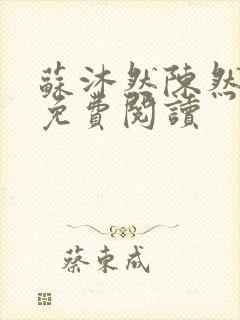 蘇沐然陳然
免費閱讀
蔡東成